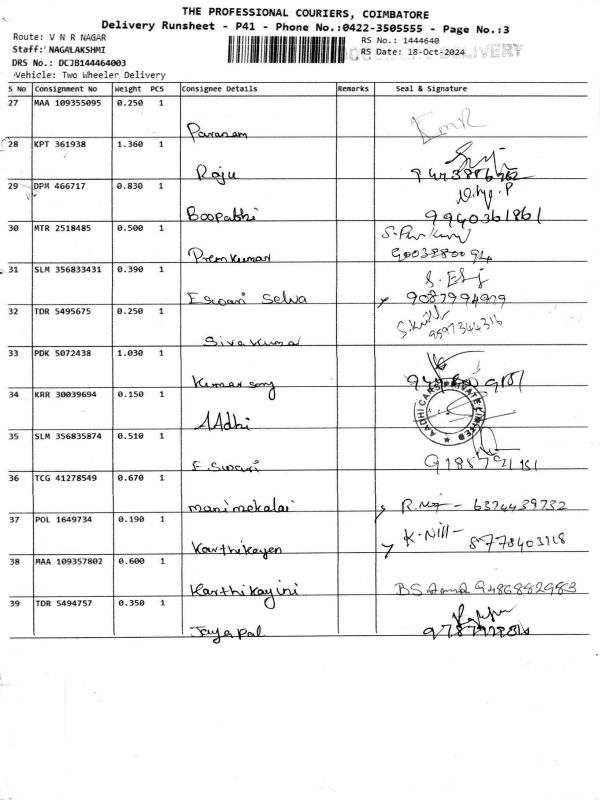 THE PROFESSIONAL COURIERS, COIMBATORE
Delivery Runsheet - P41 - Phone No.:0422-3505555 - Page No.:3
Route: V N R NAGAR RS No.: 1444640
Staff: NAGALAKSHMI RS Date: 18-Oct-2024 DELIVERY
DRS No.: DCJB144464003
Vehicle: Two Wheeler Delivery
S No Consignment No Weight PCS Consignee Details Remarks Seal & Signature
27 MAA 109355095 0.250 1
KmR
28 KPT 361938 1.360 1
Raju
29 DPM 466717 0.830 1
Boopathi 9940361861
30 MTR 2518485 0.500 1
Prem kumar 9003280094
31 SLM 356833431 0.390 1
Eswari Selva 9087994979
32 TDR 5495675 0.250 1
Siva kumar 9597344316
33 PDK 5072438 1.030 1
34 KRR 30039694 0.150 1
AAdhi AADHI CARS PRIVATE LIMITED
35 SLM 356835874 0.510 1
E. Swari
36 TCG 41278549 0.670 1
manimekalai 6374439732
37 POL 1649734 0.190 1
Karthikeyen 8778403118
38 MAA 109357802 0.600 1
Karthikayini 9486882983
39 TDR 5494757 0.350 1
Jayapal